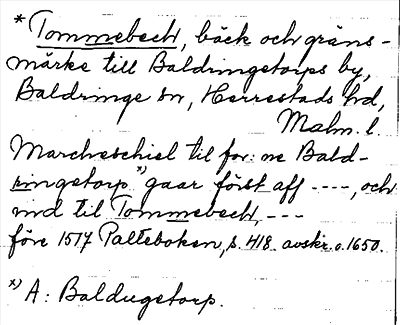 * Tommebech, bäck och gräns-
märke till Baldringetorps by,
Baldringe sn, Herrestads hd,
Malm. l.
Marcheschiel til for:ne Bald-
ringetorp *) gaar först aff ----, och
ind til Tommebech, ---
före 1517 Palteboken, s. 418 avskr. o. 1650.
*) A: Baldugetorp.